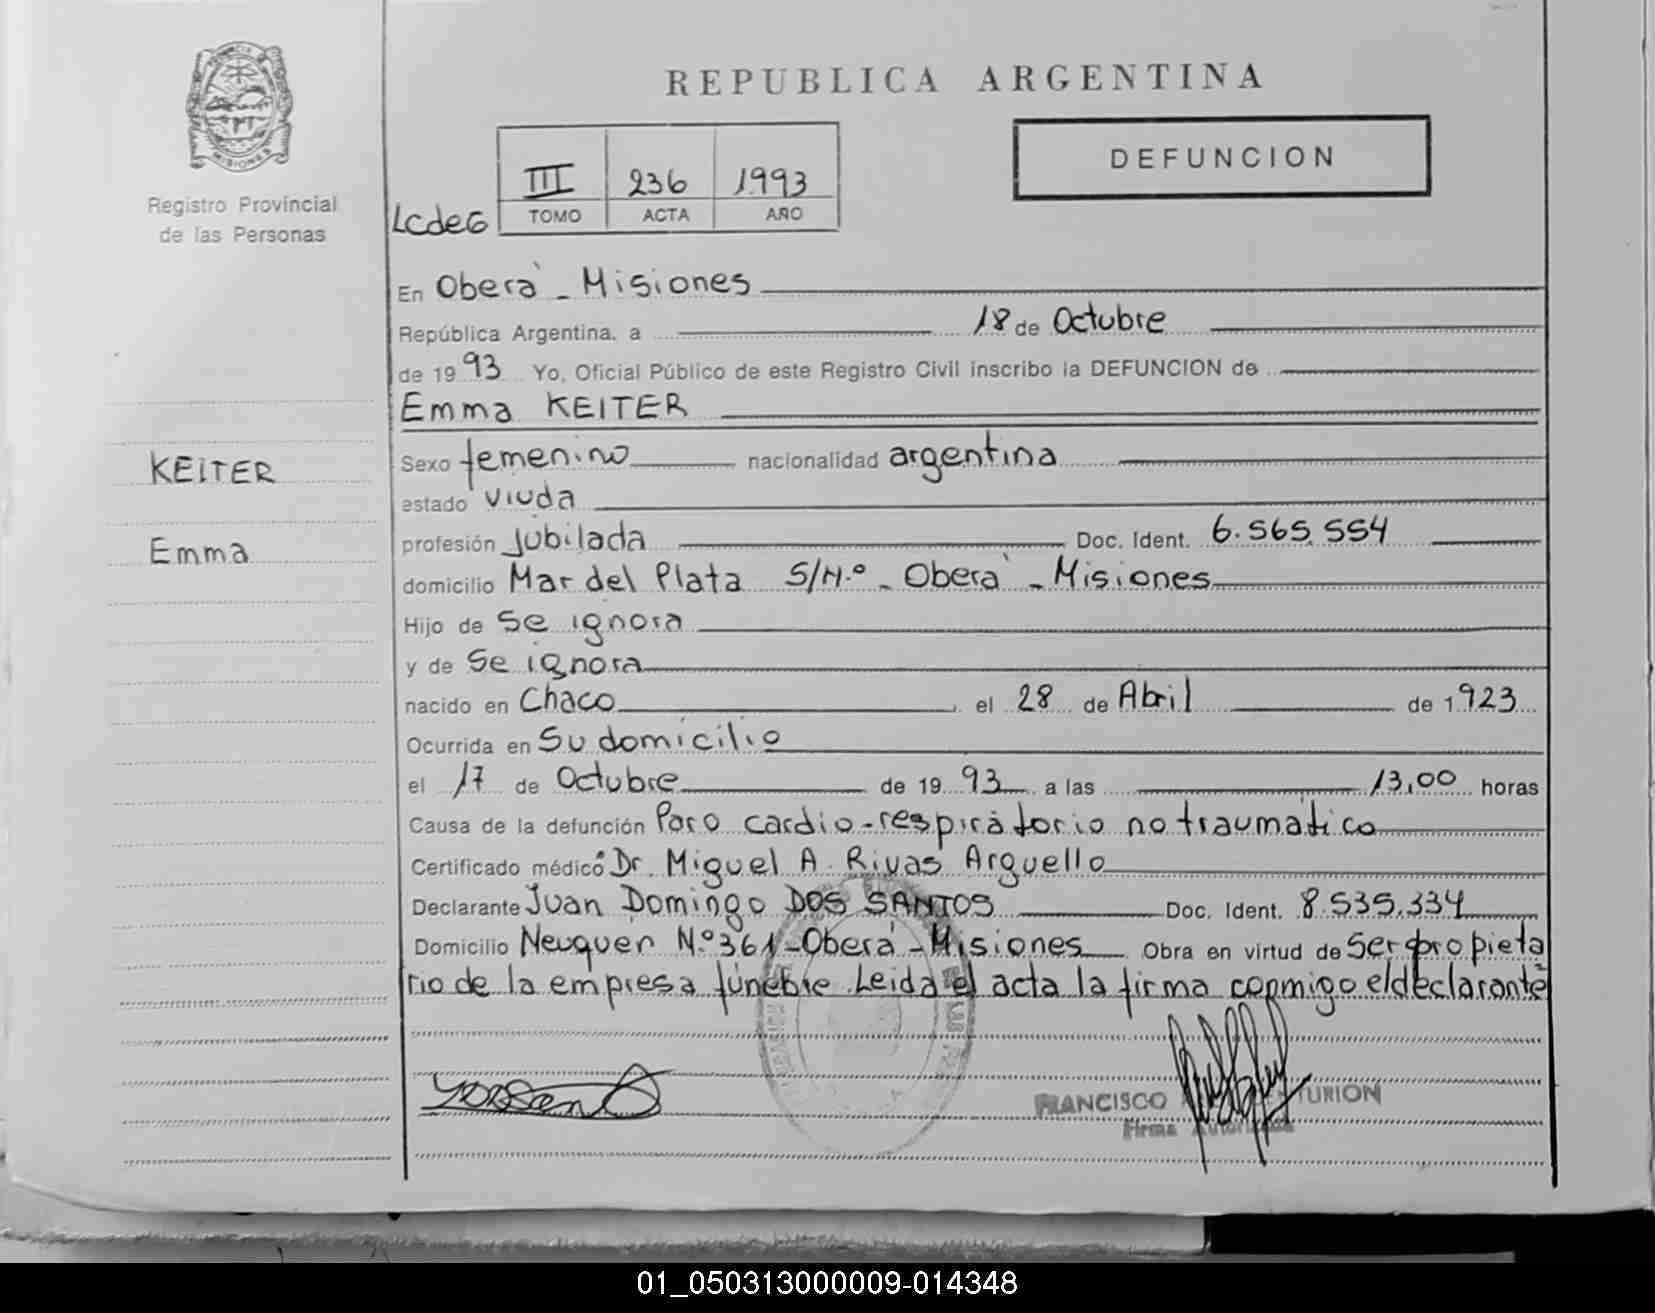 REPUBLICA ARGENTINA
MISIONES
Registro Provincial
de las Personas
DEFUNCION
III 236 1993
TOMO ACTA AÑO
LcdeG
En Oberá - Misiones
República Argentina, a 18 de Octubre
de 19 93 Yo, Oficial Público de este Registro Civil inscribo la DEFUNCION de
Emma KEITER
KEITER
Emma
Sexo femenino nacionalidad argentina
estado viuda
profesión jubilada Doc. Ident. 6.565.554
domicilio Mar del Plata S/N.º - Oberá - Misiones
Hijo de Se ignora
y de Se ignora
nacido en Chaco el 28 de Abril de 1923
Ocurrida en Su domicilio
el 17 de Octubre de 19 93 a las 13,00 horas
Causa de la defunción Paro cardio-respiratorio no traumático
Certificado médico Dr. Miguel A. Rivas Arguello
Declarante Juan Domingo DOS SANTOS Doc. Ident. 8.535.334
Domicilio Neuquén N.º 361 - Oberá - Misiones Obra en virtud de Ser propieta
rio de la empresa fúnebre. Leida el acta la firma conmigo el declarante
FRANCISCO
Firma Autorizada
01_050313000009-014348